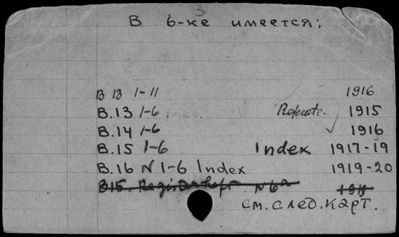 3
В б-ке имеется;
B 13 1-11 1916
B.13 1-6 1915
B.14 1-6 ✓ 1916
B.15 1-6 Index 1917-19
B.16 N 1-6 Index 1919-20
B15. N 6a
см. след. карт.